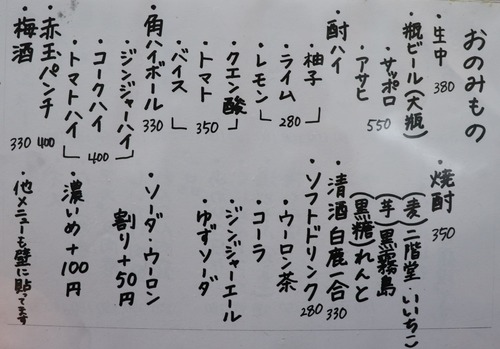 おのみもの
・生中 380
瓶ビール(大瓶)
・サッポロ
・アサヒ
550
酎ハイ
・柚子
・ライム
・レモン
280
・クエン酸
・トマト
・バイス
350
・角ハイボール 330
・ジンジャーハイ
・コークハイ
・トマトハイ
400
・赤玉パンチ 400
・梅酒 330
・焼酎 350
(麦)二階堂・いいちこ
(芋)黒霧島
(黒糖)れんと
・清酒 白鹿一合 330
・ソフトドリンク 280
・ウーロン茶
・コーラ
・ジンジャーエール
・ゆずソーダ
・ソーダ・ウーロン
割り+50円
・濃いめ+100円
・他メニューも壁に貼ってます